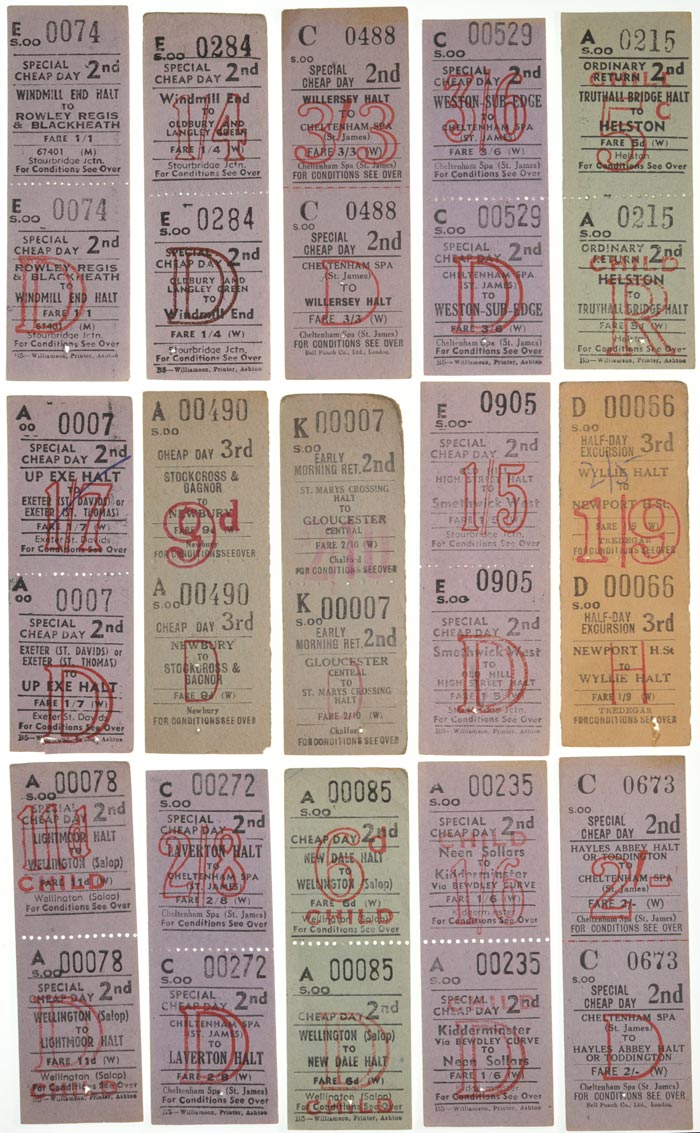 E 0074
S.OO
SPECIAL
CHEAP DAY 2nd
WINDMILL END HALT
TO
ROWLEY REGIS
& BLACKHEATH
FARE 1/1
67401 (M)
Stourbridge Jctn.
For Conditions See Over
E 0074
S.OO
SPECIAL
CHEAP DAY 2nd
ROWLEY REGIS
& BLACKHEATH
TO
WINDMILL END HALT
FARE 1/1
67401 (M)
Stourbridge Jctn.
For Conditions See Over
D
BS—Williamson, Printer, Ashton
E 0284
S.OO
SPECIAL
CHEAP DAY 2nd
Windmill End
TO
OLDBURY AND
LANGLEY GREEN
1/4
FARE 1/4 (W)
Stourbridge Jctn.
For Conditions See Over
E 0284
S.OO
SPECIAL
CHEAP DAY 2nd
OLDBURY AND
LANGLEY GREEN
TO
Windmill End
D
FARE 1/4 (W)
Stourbridge Jctn.
For Conditions See Over
BS—Williamson, Printer, Ashton
C 0488
S.OO
SPECIAL
CHEAP DAY 2nd
WILLERSEY HALT
TO
CHELTENHAM SPA
(St. James)
3/3
FARE 3/3 (W)
Cheltenham Spa (St. James)
FOR CONDITIONS SEE OVER
C 0488
S.OO
SPECIAL
CHEAP DAY 2nd
CHELTENHAM SPA
(St. James)
TO
WILLERSEY HALT
D
FARE 3/3 (W)
Cheltenham Spa (St. James)
FOR CONDITIONS SEE OVER
Bell Punch Co., Ltd., London.
C 00529
S.OO
SPECIAL
CHEAP DAY 2nd
WESTON-SUB-EDGE
TO
CHELTENHAM SPA
(ST. JAMES)
3/6
FARE 3/6 (W)
Cheltenham Spa (St. James)
For Conditions See Over
C 00529
S.OO
SPECIAL
CHEAP DAY 2nd
CHELTENHAM SPA
(ST. JAMES)
TO
WESTON-SUB-EDGE
D
FARE 3/6 (W)
Cheltenham Spa (St. James)
For Conditions See Over
BS—Williamson, Printer, Ashton
A 0215
S.OO
ORDINARY
RETURN 2nd
CHILD
TRUTHALL BRIDGE HALT
TO
HELSTON
FARE 5d (W)
Helston
For Conditions See Over
A 0215
S.OO
ORDINARY
RETURN 2nd
CHILD
HELSTON
TO
TRUTHALL BRIDGE HALT
R
FARE 5d (W)
Helston
For Conditions See Over
BS—Williamson, Printer, Ashton
A 0007
OO
SPECIAL
CHEAP DAY 2nd
UP EXE HALT
TO
EXETER (ST. DAVIDS) or
EXETER (ST. THOMAS)
1/7
FARE 1/7 (W)
Exeter St. Davids
For Conditions See Over
A 0007
OO
SPECIAL
CHEAP DAY 2nd
EXETER (ST. DAVIDS) or
EXETER (ST. THOMAS)
TO
UP EXE HALT
D
FARE 1/7 (W)
Exeter St. Davids
For Conditions See Over
BS—Williamson, Printer, Ashton
A 00490
S.OO
CHEAP DAY 3rd
STOCKCROSS &
BAGNOR
TO
NEWBURY
9d
FARE 9d (W)
Newbury
FOR CONDITIONS SEE OVER
A 00490
S.OO
CHEAP DAY 3rd
NEWBURY
TO
STOCKCROSS &
BAGNOR
D
FARE 9d (W)
Newbury
FOR CONDITIONS SEE OVER
K 00007
S.OO
EARLY
MORNING RET. 2nd
ST. MARYS CROSSING
HALT
TO
GLOUCESTER
CENTRAL
FARE 2/10 (W)
Chalford
FOR CONDITIONS SEE OVER
K 00007
S.OO
EARLY
MORNING RET. 2nd
GLOUCESTER
CENTRAL
TO
ST. MARYS CROSSING
HALT
D
FARE 2/10 (W)
Chalford
FOR CONDITIONS SEE OVER
E 0905
S.OO
SPECIAL
CHEAP DAY 2nd
HIGH STREET HALT
TO
Smethwick West
1/5
Stourbridge Jctn.
For Conditions See Over
E 0905
S.OO
SPECIAL
CHEAP DAY 2nd
Smethwick West
TO
OLD HILL
HIGH STREET HALT
D
FARE 1/5 (W)
Stourbridge Jctn.
For Conditions See Over
BS—Williamson, Printer, Ashton
D 00066
S.OO
HALF-DAY
EXCURSION 3rd
WYLLIE HALT
TO
NEWPORT H.St
1/9
FARE 1/9 (W)
TREDEGAR
FOR CONDITIONS SEE OVER
D 00066
S.OO
HALF-DAY
EXCURSION 3rd
NEWPORT H.St
TO
WYLLIE HALT
H
FARE 1/9 (W)
TREDEGAR
FOR CONDITIONS SEE OVER
A 00078
S.OO
SPECIAL
CHEAP DAY 2nd
LIGHTMOOR HALT
TO
WELLINGTON (Salop)
CHILD
FARE 11d (W)
Wellington (Salop)
For Conditions See Over
A 00078
S.OO
SPECIAL
CHEAP DAY 2nd
WELLINGTON (Salop)
TO
LIGHTMOOR HALT
D
FARE 11d (W)
Wellington (Salop)
For Conditions See Over
CHILD
BS—Williamson, Printer, Ashton
C 00272
S.OO
SPECIAL
CHEAP DAY 2nd
LAVERTON HALT
TO
CHELTENHAM SPA
(ST. JAMES)
2/8
FARE 2/8 (W)
Cheltenham Spa (St. James)
For Conditions See Over
C 00272
S.OO
SPECIAL
CHEAP DAY 2nd
CHELTENHAM SPA
(ST. JAMES)
TO
LAVERTON HALT
D
FARE 2/8 (W)
Cheltenham Spa (St. James)
For Conditions See Over
BS—Williamson, Printer, Ashton
A 00085
S.OO
CHEAP DAY 2nd
NEW DALE HALT
TO
WELLINGTON (Salop)
6d
FARE 6d (W)
Wellington (Salop)
CHILD
For Conditions See Over
A 00085
S.OO
CHEAP DAY 2nd
WELLINGTON (Salop)
TO
NEW DALE HALT
D
FARE 6d (W)
Wellington (Salop)
For Conditions See Over
CHILD
BS—Williamson, Printer, Ashton
A 00235
S.OO
SPECIAL
CHEAP DAY 2nd
CHILD
Neen Sollars
TO
Kidderminster
Via BEWDLEY CURVE
1/6
FARE 1/6 (W)
Kidderminster
For Conditions See Over
A 00235
S.OO
SPECIAL
CHEAP DAY 2nd
CHILD
Kidderminster
Via BEWDLEY CURVE
TO
Neen Sollars
D
FARE 1/6 (W)
Kidderminster
For Conditions See Over
BS—Williamson, Printer, Ashton
C 0673
S.OO
SPECIAL
CHEAP DAY 2nd
HAYLES ABBEY HALT
OR TODDINGTON
TO
CHELTENHAM SPA
(St. James)
2/-
FARE 2/- (W)
Cheltenham Spa (St. James)
FOR CONDITIONS SEE OVER
C 0673
S.OO
SPECIAL
CHEAP DAY 2nd
CHELTENHAM SPA
(St. James)
TO
HAYLES ABBEY HALT
OR TODDINGTON
D
FARE 2/- (W)
Cheltenham Spa (St. James)
FOR CONDITIONS SEE OVER
Bell Punch Co., Ltd., London.